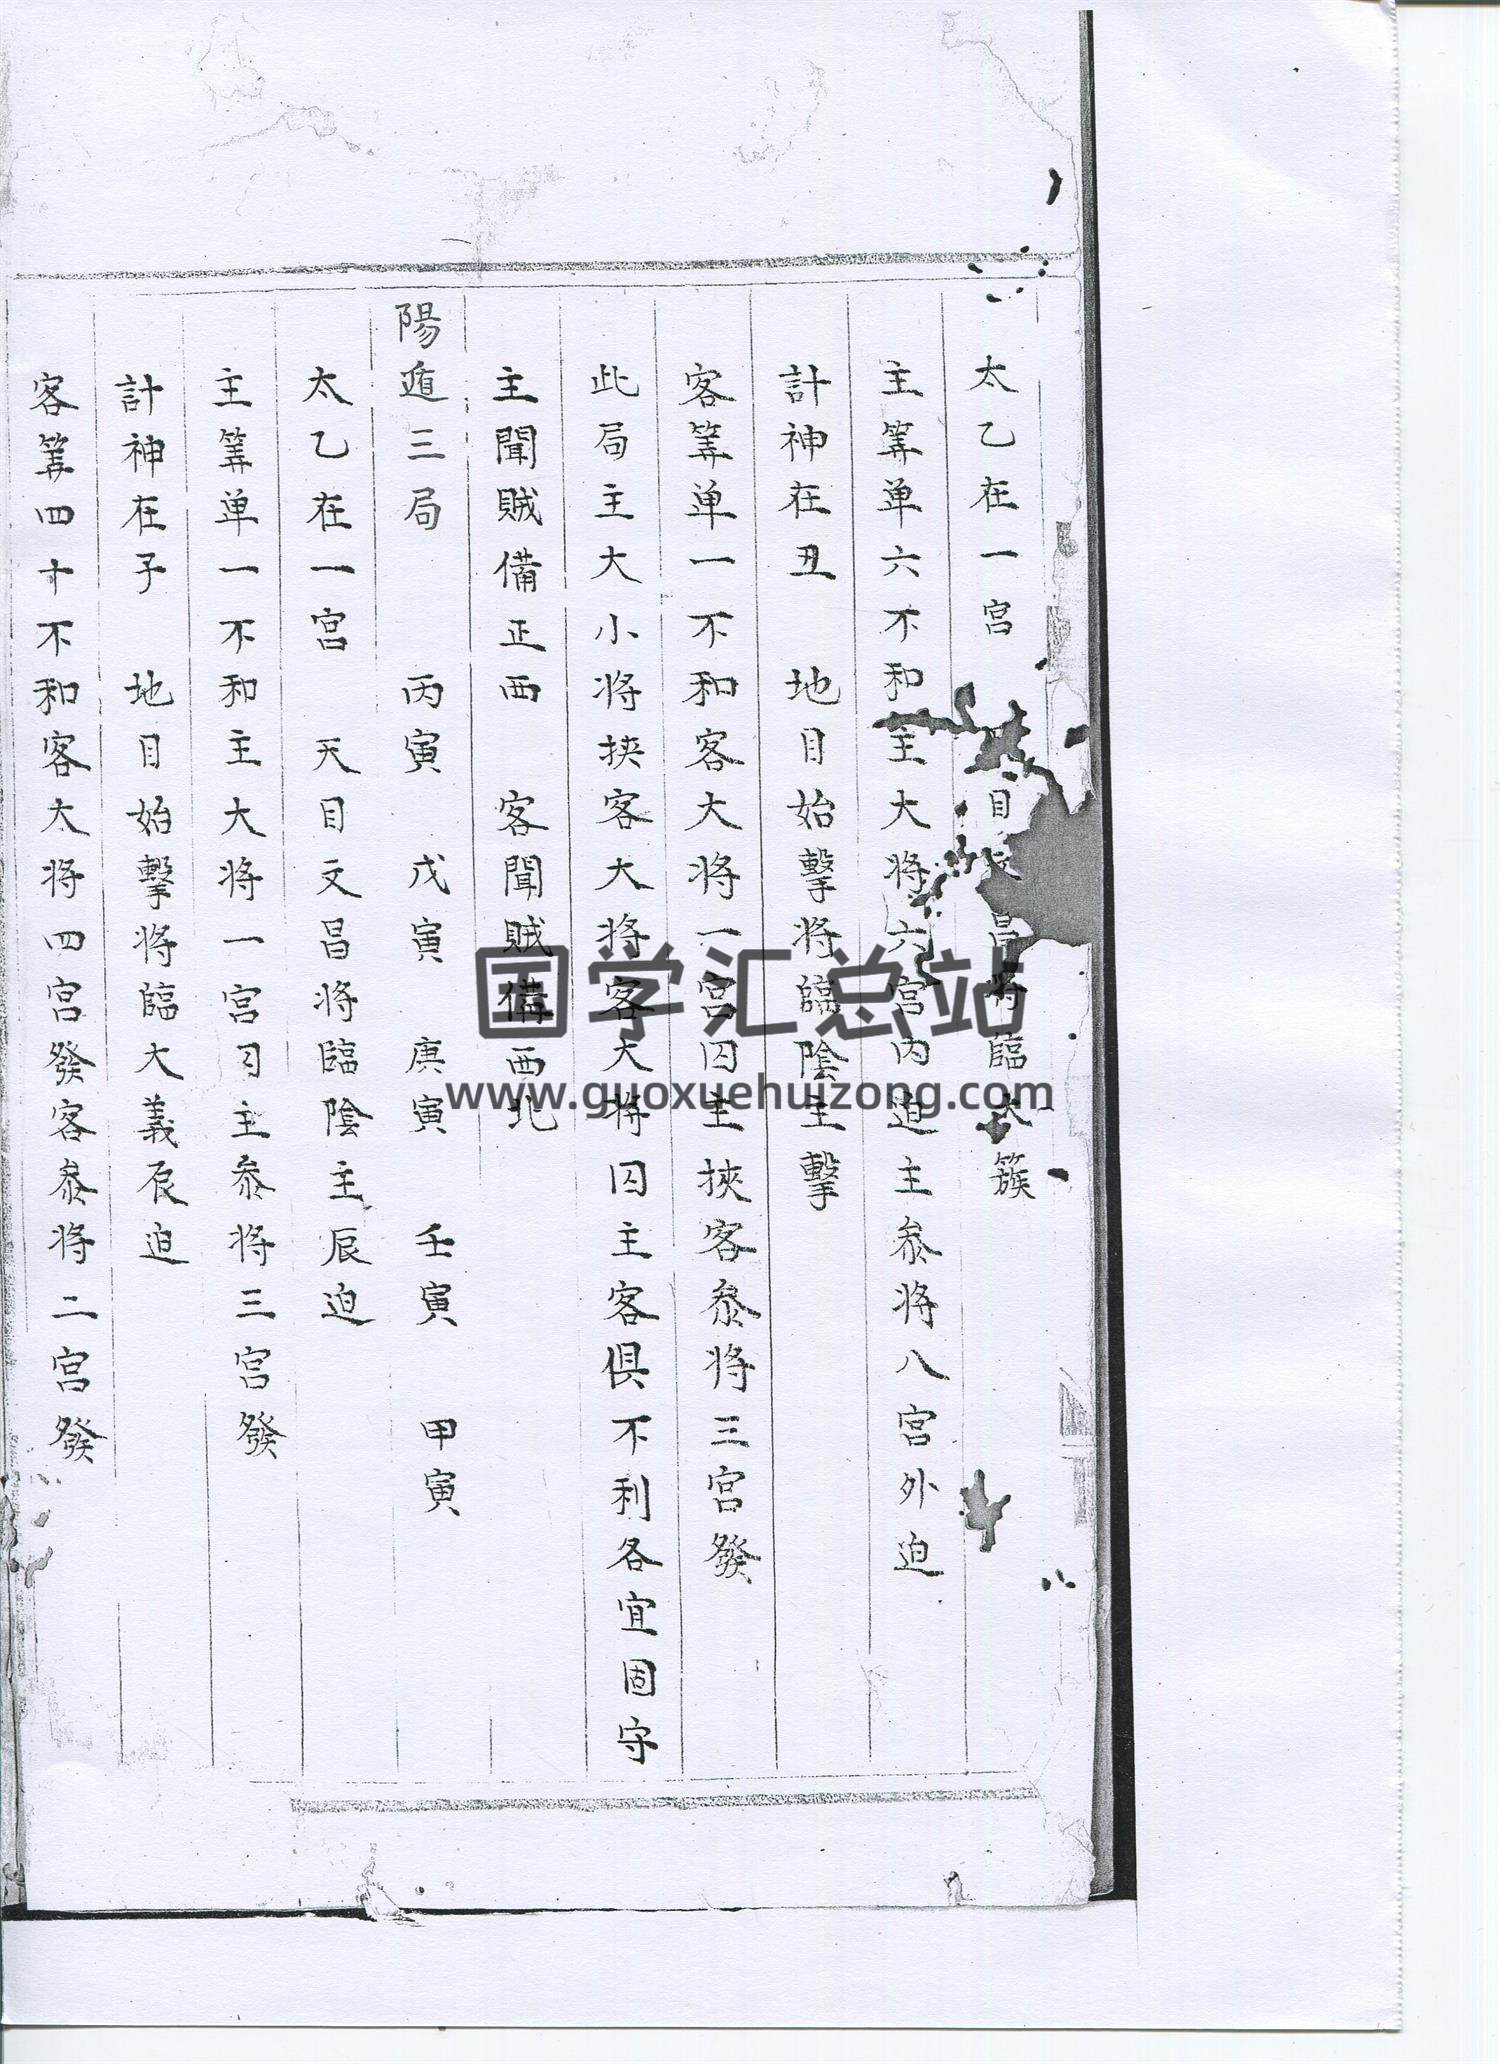 太乙在一宫 目文昌将臨太簇
主筭单六不和主大将六宫内迫主叅将八宫外迫
計神在丑 地目始擊将臨陰主擊
客筭单一不和客大将一宫囚主挾客叅将三宫發
此局主大小将挟客大将客大将囚主客俱不利各宜固守
主聞賊備正西 客聞賊備西北
陽遁三局 丙寅 戊寅 庚寅 壬寅 甲寅
太乙在一宫 天目文昌将臨陰主辰迫
主筭单一不和主大将一宫囚主叅将三宫發
計神在子 地目始擊将臨大義辰迫
客筭四十不和客大将四宫發客叅将二宫發
国学汇总站
www.guoxuehuizong.com